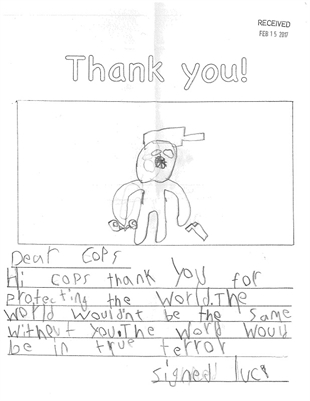 RECEIVED
FEB 15 2017
Thank you!
Dear Cops
Hi cops thank you for
protecting the world. The
world wouldnt be the same
without you. The world would
be in true terror
signed luca